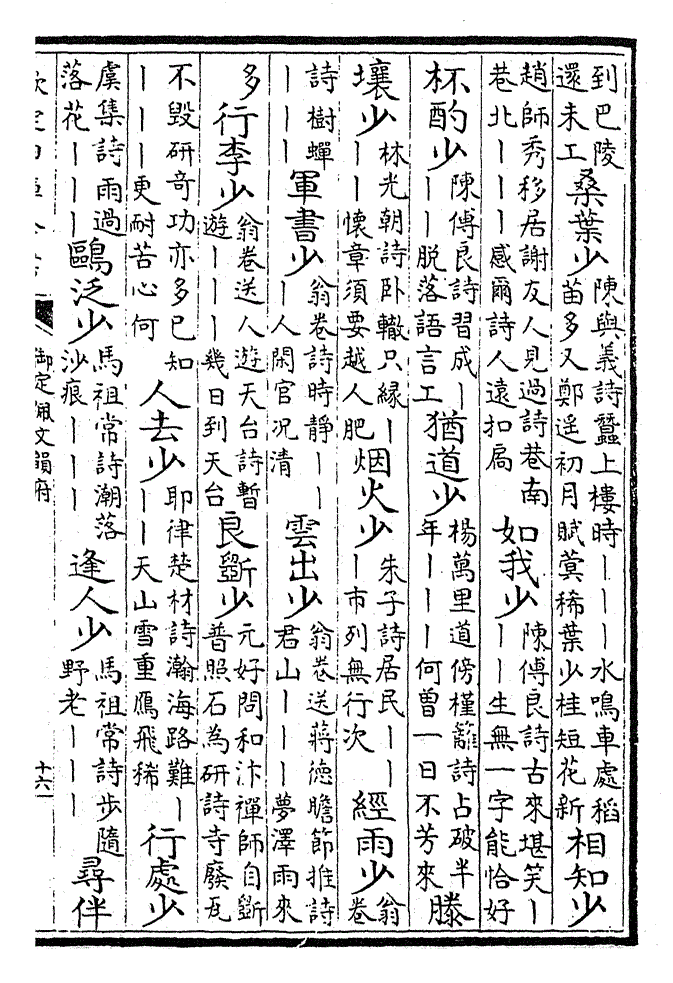 到巴陵
還未工
桑葉少
陳與義詩蠶上樓時丨丨丨水鳴車處稻
苗多又鄭遥初月賦蓂稀葉少桂短花新
相知少
趙師秀移居謝友人見過詩巷南
巷北丨丨丨感爾詩人遠扣扃
如我少
陳傅良詩古來堪笑丨
丨丨生無一字能恰好
杯酌少
陳傅良詩習成丨
丨丨脱落語言工
猶道少
楊萬里道傍槿籬詩占破半
年丨丨丨何曾一日不芳來
滕
壤少
林光朝詩卧轍只緣丨
丨丨懷章須要越人肥
烟火少
朱子詩居民丨丨
丨市列無行次
經雨少
翁
卷
詩樹蟬
丨丨丨
軍書少
翁卷詩時靜丨丨
丨人閑官况清
雲出少
翁卷送蔣德瞻節推詩
君山丨丨丨夢澤雨來
多
行李少
翁卷送人遊天台詩暫
遊丨丨丨幾日到天台
良斵少
元好問和汴禪師自斵
普照石為研詩寺廢瓦
不毁研奇功亦多已知
丨丨丨更耐苦心何
人去少
耶律楚材詩瀚海路難丨
丨丨天山雪重鴈飛稀
行處少
虞集詩雨過
落花丨丨丨
鷗泛少
馬祖常詩潮落
沙痕丨丨丨
逢人少
馬祖常詩步隨
野老丨丨丨
尋伴
欽定四庫全書
御定佩文韻府
十六